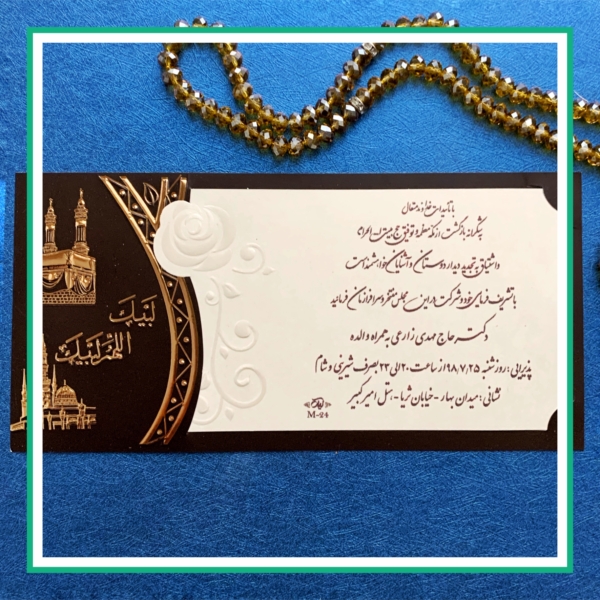 لبیك
اللهم لبیك
با تأییدات خداوند متعال
به شکرانه بازگشت از مکه معظمه و توفیق حج بیت الله الحرام
و اشتیاق به تجدید دیدار دوستان و آشنایان خواهشمند است
با تشریف فرمایی خود و شرکت در این مجلس مفتخر و سرافرازمان فرمائید
دکتر حاج مهدی زارعی به همراه والده
پذیرایی : روز شنبه ۹۸/۷/۲۵ از ساعت ۲۰ الی ۲۳ بصرف شیرینی و شام
نشانی : میدان بهار - خیابان ثریا - هتل امیر کبیر
M-24